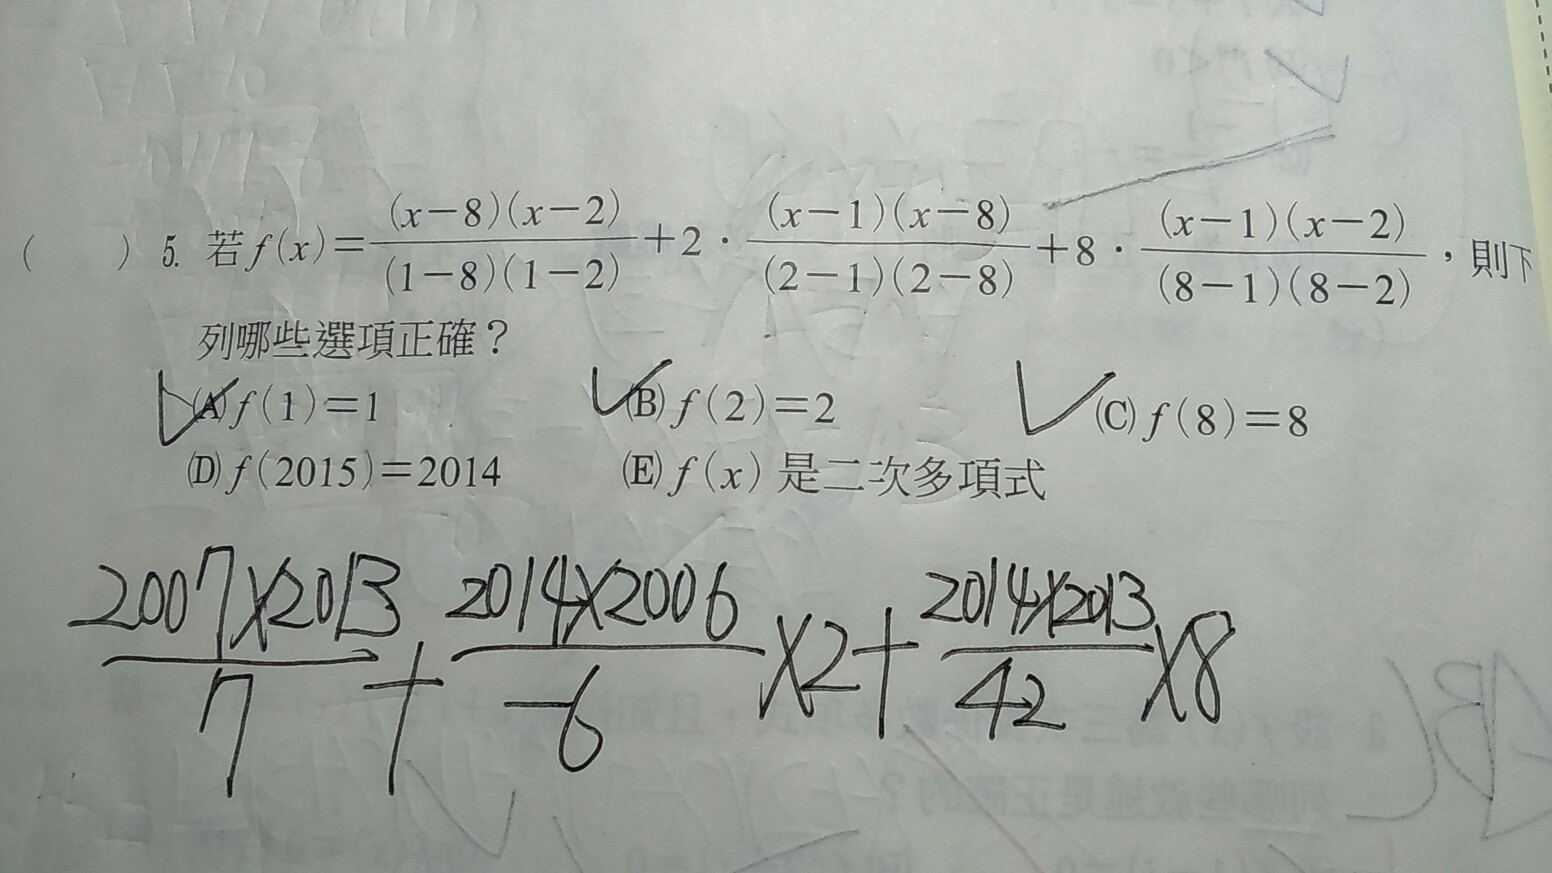 ( ) 5. 若 f(x)=\frac{(x-8)(x-2)}{(1-8)(1-2)}+2·\frac{(x-1)(x-8)}{(2-1)(2-8)}+8·\frac{(x-1)(x-2)}{(8-1)(8-2)}，則下
列哪些選項正確？
(A) f(1)=1 (B) f(2)=2 (C) f(8)=8
(D) f(2015)=2014 (E) f(x) 是二次多項式
\frac{2007×2013}{7}+\frac{2014×2006}{-6}×2+\frac{2014×2013}{42}×8